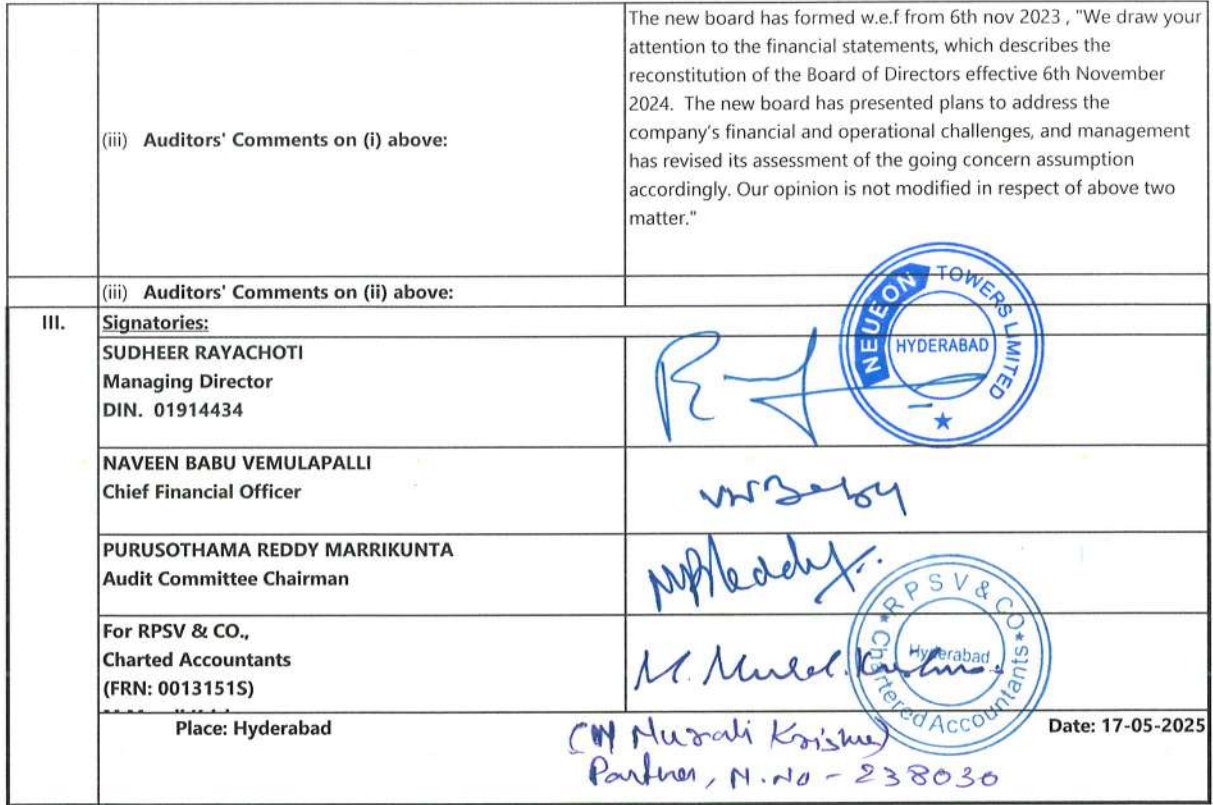 The new board has formed w.e.f from 6th nov 2023 , "We draw your
attention to the financial statements, which describes the
reconstitution of the Board of Directors effective 6th November
2024. The new board has presented plans to address the
(iii) Auditors' Comments on (i) above:
company's financial and operational challenges, and management
has revised its assessment of the going concern assumption
accordingly. Our opinion is not modified in respect of above two
matter."
(iii) Auditors' Comments on (ii) above:
III.
Signatories:
SUDHEER RAYACHOTI
Managing Director
DIN. 01914434
NEUEON TOWERS LMITED
HYDERABAD
NAVEEN BABU VEMULAPALLI
Chief Financial Officer
PURUSOTHAMA REDDY MARRIKUNTA
Audit Committee Chairman
MPReddy
For RPSV & CO.,
Charted Accountants
(FRN: 0013151S)
RPSV & CO
Chartered Accountants
Hyderabad
Place: Hyderabad
Date: 17-05-2025
(M Murali Krishna)
Partner, M.No - 238030